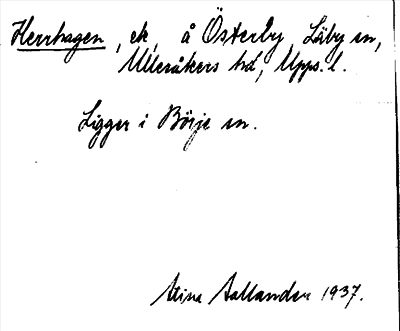 Herrhagen, ek, å Österby, Läby sn,
Ulleråkers hd, Upps. l.
Ligger i Börje sn.
Stina Hallander 1937.